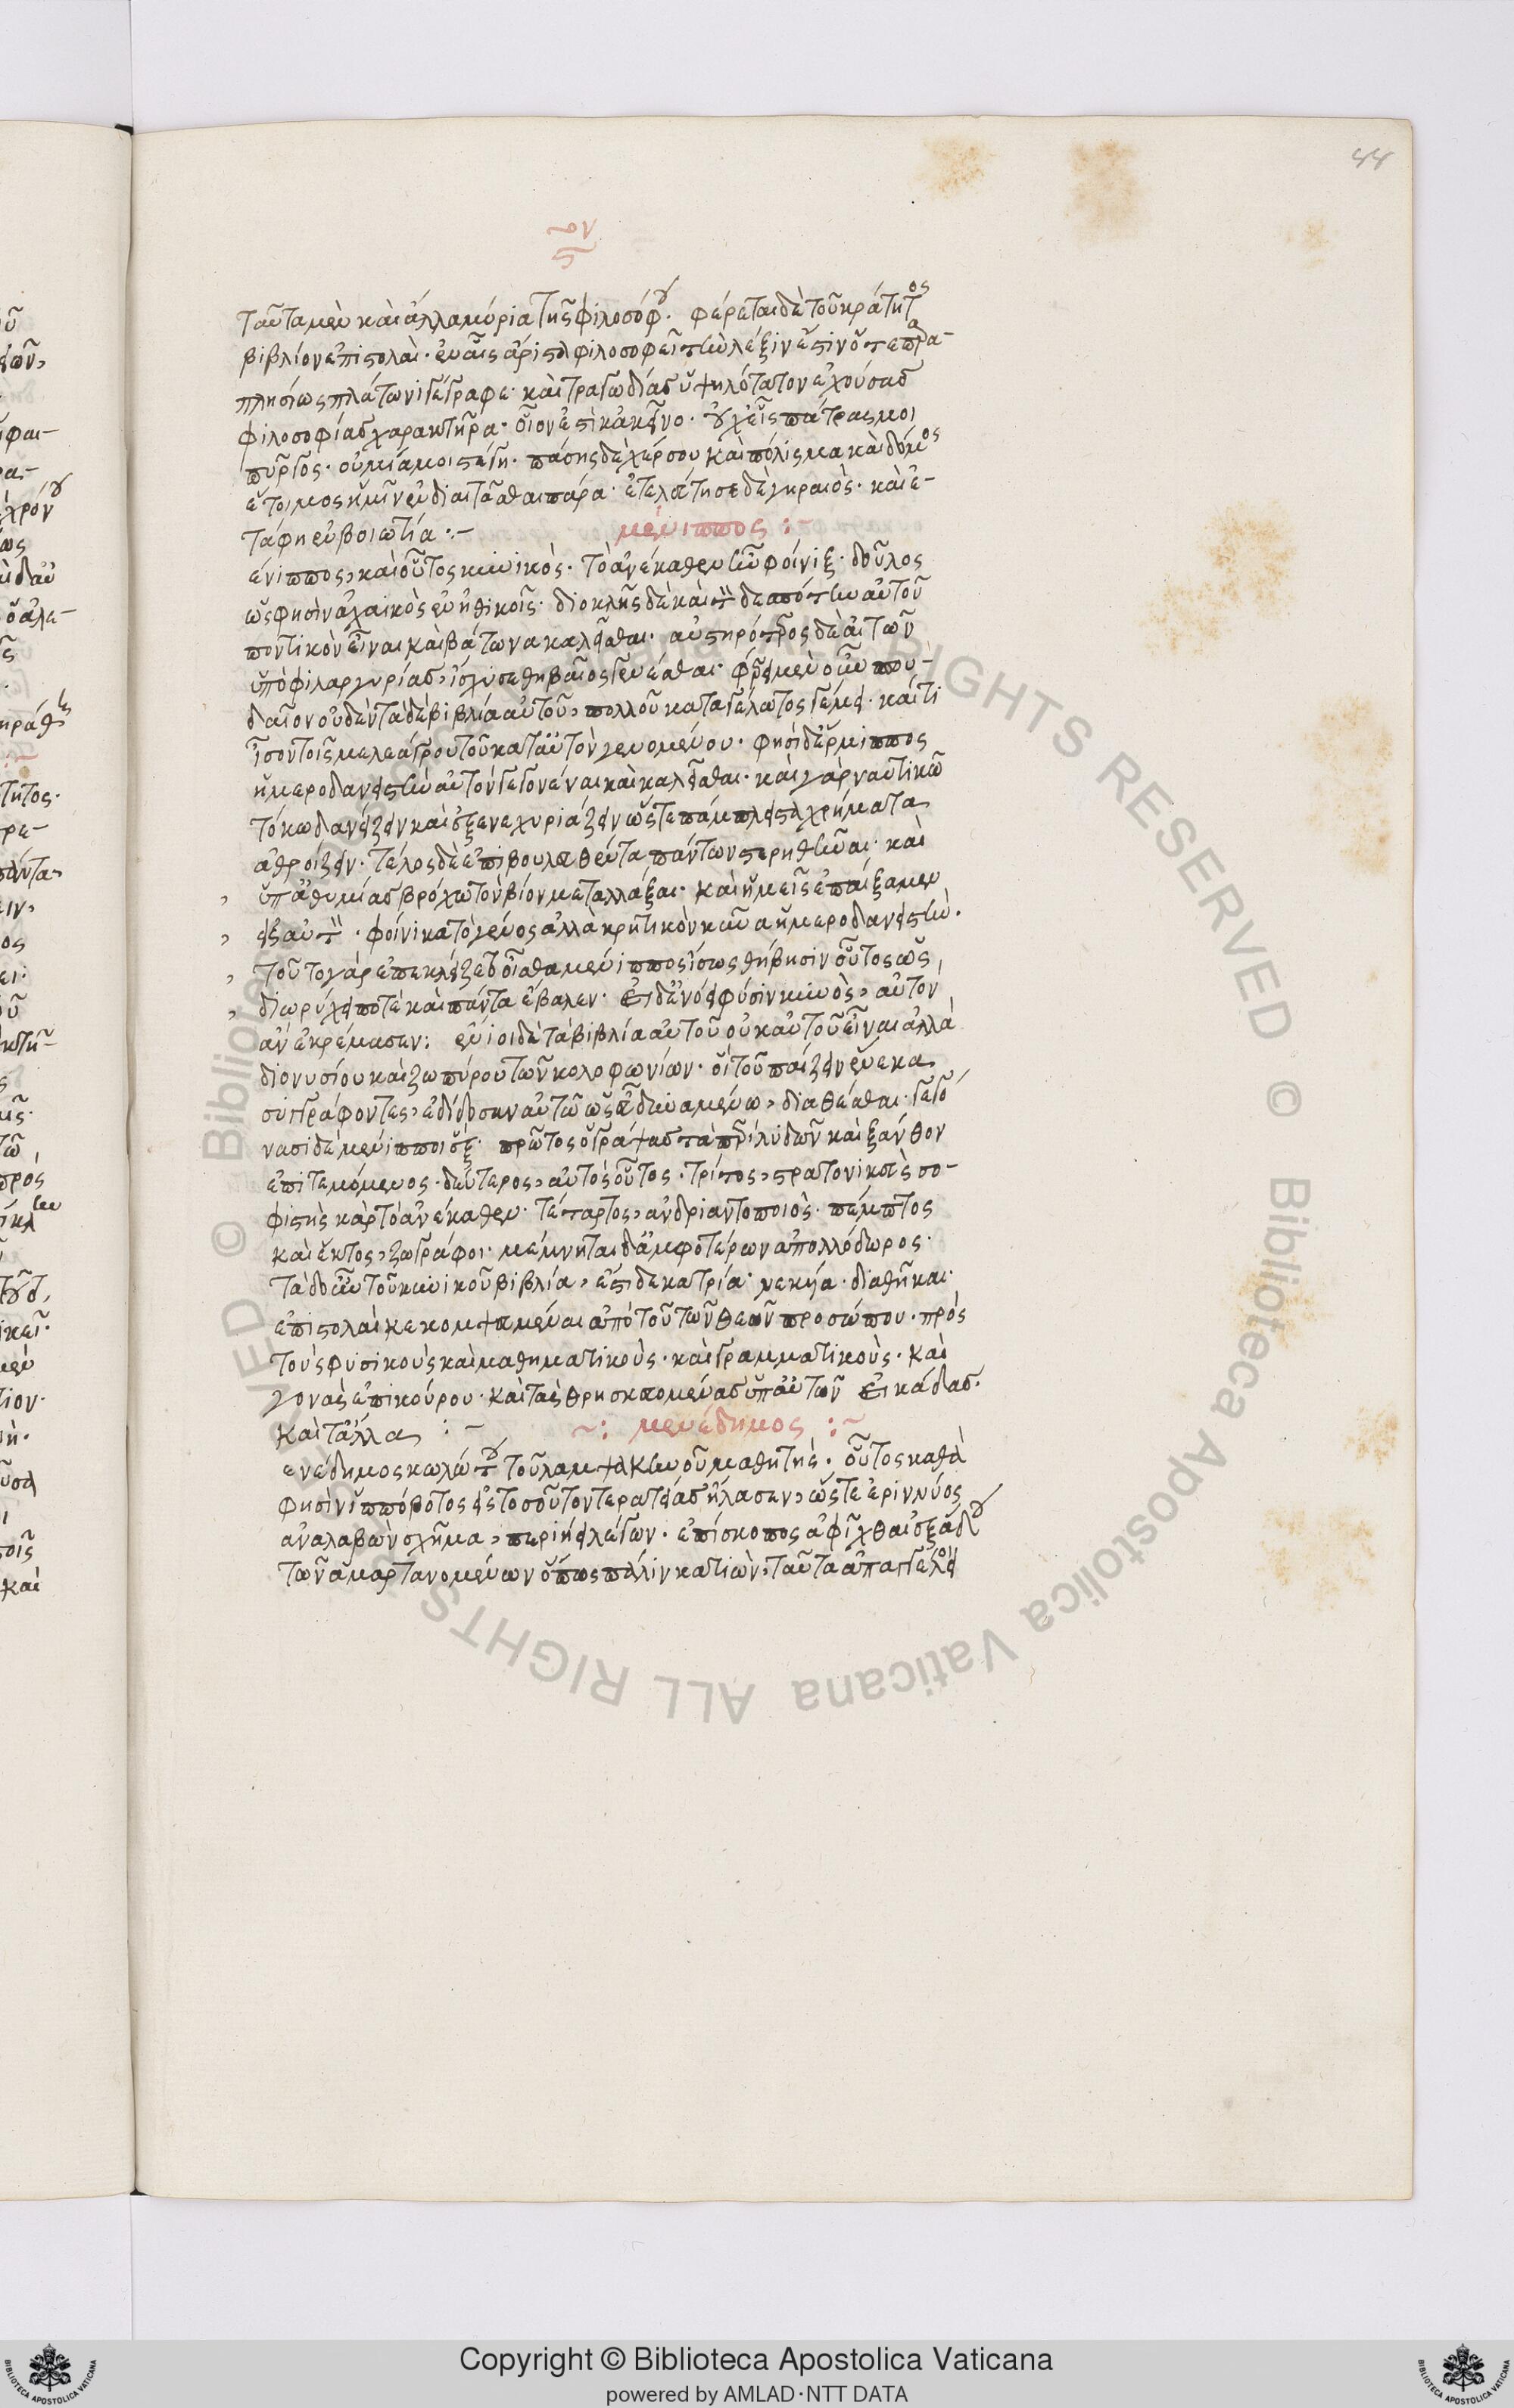 44
ον
ς
ταῦτα μὲν καὶ ἄλλα μύρια τῆς φιλοσόφου. φέρεται δὲ τοῦ κράτητος
βιβλίον ἐπιστολαὶ. ἐν αἷς ἄριστα φιλοσοφεῖ τὴν λέξιν ἔστιν ὅτε παρα-
πλησίως πλάτωνι γέγραφε καὶ τραγωδίας ὑψηλότατον ἐχούσας
φιλοσοφίας χαρακτῆρα. οἷόν ἐστὶ κἀκεῖνο. οὐχ εἷς πάτρας μοι
πύργος. οὐ μία μοι στέγη. πάσης δὲ χέρσου καὶ πόλισμα καὶ δόμος
ἕτοιμος ἡμῖν ἐνδιαιτᾶσθαι πάρα. ἐτελεύτησε δὲ γηραιὸς. καὶ ἐ-
τάφη ἐν βοιωτία :-
μένιππος :-
ένιππος, καὶ οὗτος κυνικὸς. τὸ ἀνέκαθεν ἦν φοίνιξ. δοῦλος
ὥς φησὶν ἀχαικὸς ἐν ἠθικοῖς. διοκλῆς δὲ καὶ τὸν δεσπότην αὐτοῦ
ποντικὸν εἶναι καὶ βάτωνα καλεῖσθαι. αὐστηρότερος δὲ αἰτῶν
ὑπὸ φιλαργυρίας, ἴσχυσε θηβαῖος γενέσθαι. φέρει μὲν οὖν σπου-
δαῖον οὐδὲν τὰ δὲ βιβλία αὐτοῦ, πολλοῦ καταγέλωτος γέμει. καί τι
ἴσον τοῖς μελεάγρου τοῦ κατ' αὐτὸν γενομένου. φησὶ δ' ἕρμιππος
ἡμεροδανειστὴν αὐτόν γεγονέναι καὶ καλεῖσθαι. καὶ γὰρ ναυτικῶ
τόκω δανείζειν καὶ ἐξενεχυριάζειν ὥστε πάμπλειστα χρήματα
ἀθροίζειν. τέλος δὲ ἐπιβουλευθέντα πάντων στερηθῆναι. καὶ
ὑπ' ἀθυμίας βρόχω τὸν βίον μεταλλάξαι. καὶ ἡμεῖς ἐπαίξαμεν
εἰς αὐτόν. φοίνικα τὸ γένος ἀλλὰ κρητικὸν κύνα ἡμεροδανειστὴν.
τοῦτο γὰρ ἐπεκλήζετο οἶσθα μένιππος ἴσως θήβησιν οὗτος ὡς
διωρύχει ποτὲ καὶ πάντα ἔβαλεν. εἰδ' ἐνόει φύσιν κυνὸς, αὑτὸν
ἀνεκρέμασεν: ἔνιοι δὲ τὰ βιβλία αὐτοῦ οὐκ αὐτοῦ εἶναι ἀλλὰ
διονυσίου καὶ ζωπύρου τῶν κολοφωνίων. οἳ τοῦ παίζειν ἕνεκα
συγγράφοντες, ἐδίδοσαν αὐτῶ ὡς εὖ δυναμένω, διαθέσθαι. γεγό
νασι δὲ μένιπποι ἕξ. πρῶτος ὁ γράψας τὰ περὶ λυδῶν καὶ ξάνθον
ἐπιτεμόμενος. δεύτερος, αὐτὸς οὗτος. τρίτος, στρατονικεὺς σο-
φιστὴς κὰρ τὸ ἀνέκαθεν. τέταρτος, ἀνδριαντοποιὸς. πέμπτος
καὶ ἕκτος, ζωγράφοι. μέμνηται δ' ἀμφοτέρων ἀπολλόδωρος.
τὰ δ' οὖν τοῦ κυνικοῦ βιβλία, ἐστὶ δεκατρία. νεκυία. διαθῆκαι.
ἐπιστολαὶ κεκομψευμέναι ἀπὸ τοῦ τῶν θεῶν προσώπου. πρὸς
τοὺς φυσικοὺς καὶ μαθηματικοὺς. καὶ γραμματικοὺς. καὶ
γονὰς ἐπικούρου. καὶ τὰς θρησκευομένας ὑπ' αὐτῶν εἰκάδας.
καὶ τἄλλα :-
~: μενέδημος :~
ενέδημος κωλώτου τοῦ λαμψακηνοῦ μαθητὴς. οὗτος καθὰ
φησὶν ἱππόβοτος εἰς τοσοῦτον τερατείας ἤλασεν, ὥστε ἐρινύος
ἀναλαβὼν σχῆμα, περιήει λέγων. ἐπίσκοπος ἀφῖχθαι ἐξ ἅδου
τῶν ἁμαρτανομένων ὅπως πάλιν κατιὼν, ταῦτα ἀπαγγέλοι
Copyright © Biblioteca Apostolica Vaticana
powered by AMLAD·NTT DATA